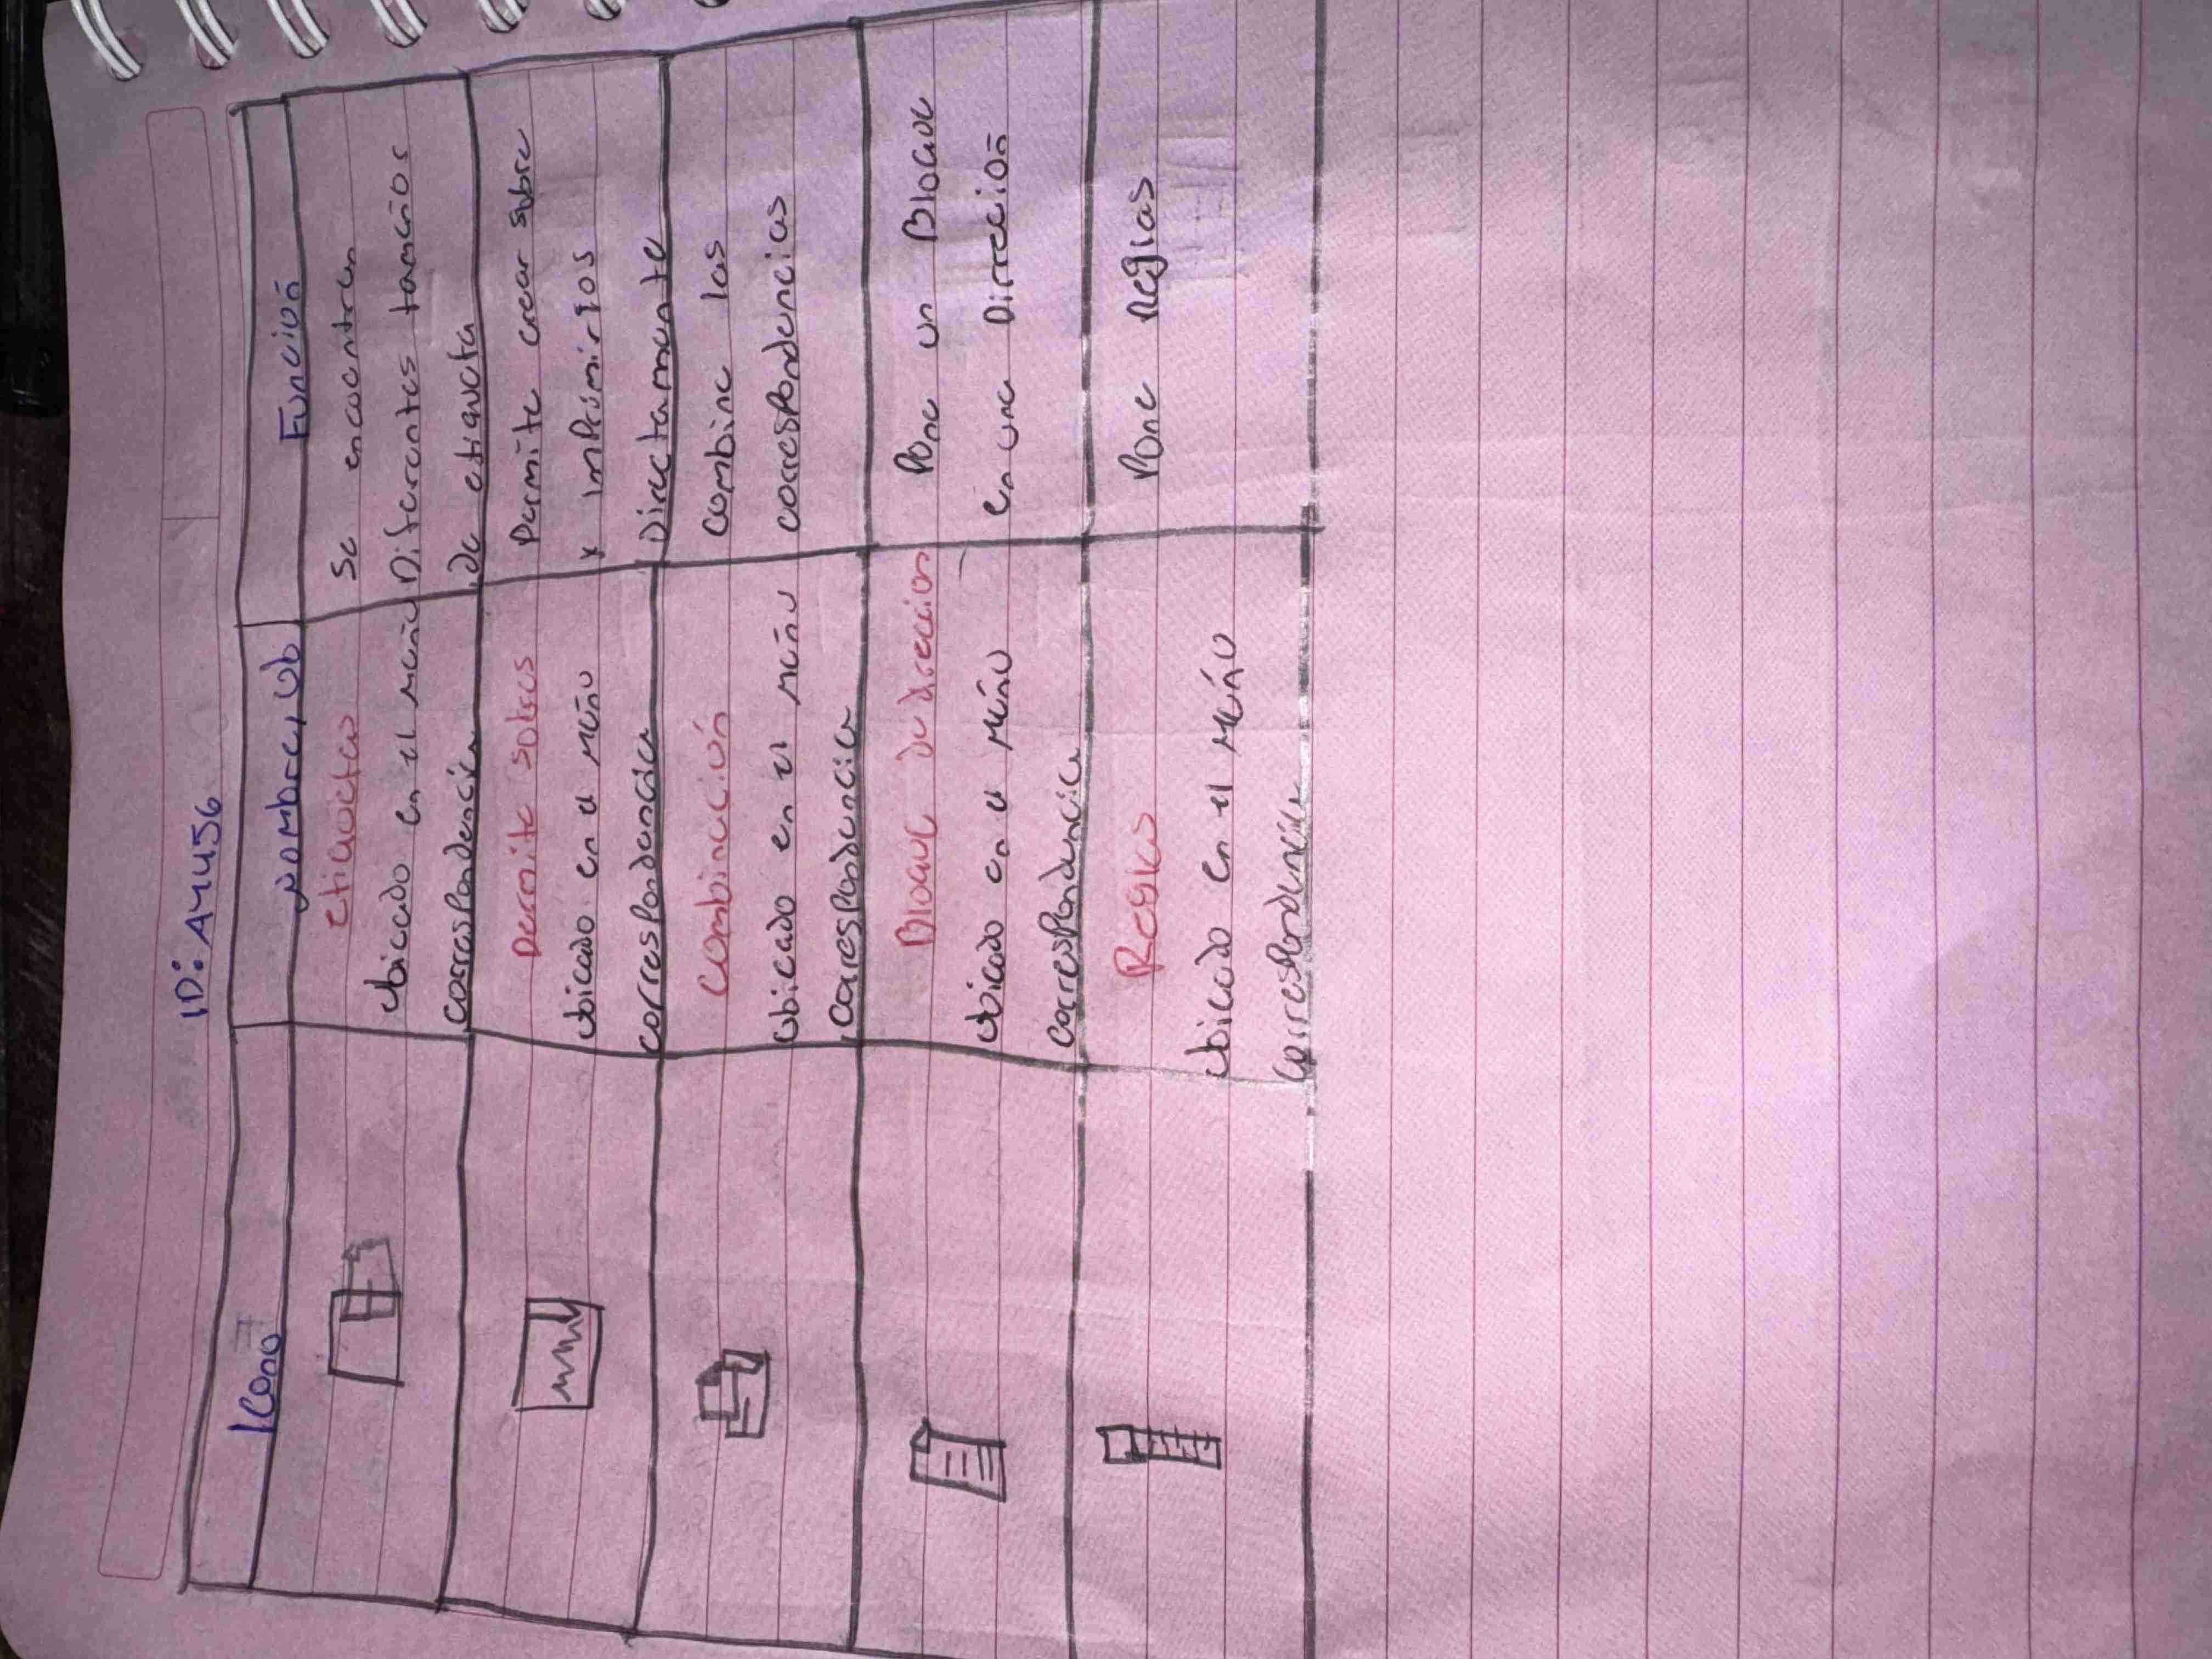 ID: A4456
Icono
Nombre, Ub
Función
etiquetas
Ubicado en el menú
correspondencia
Se encuentran
Diferentes tamaños
de etiqueta
Permite sobres
Ubicado en el menú
correspondencia
Permite crear sobre
y imprimirlos
Directamente
Combinación
Ubicado en el menú
correspondencia
combina las
correspondencias
Bloque de direccion
Ubicado en el menú
correspondencia
Pone un Bloque
en una Dirrecion
Reglas
Ubicado en el menú
correspondencia
Pone Reglas